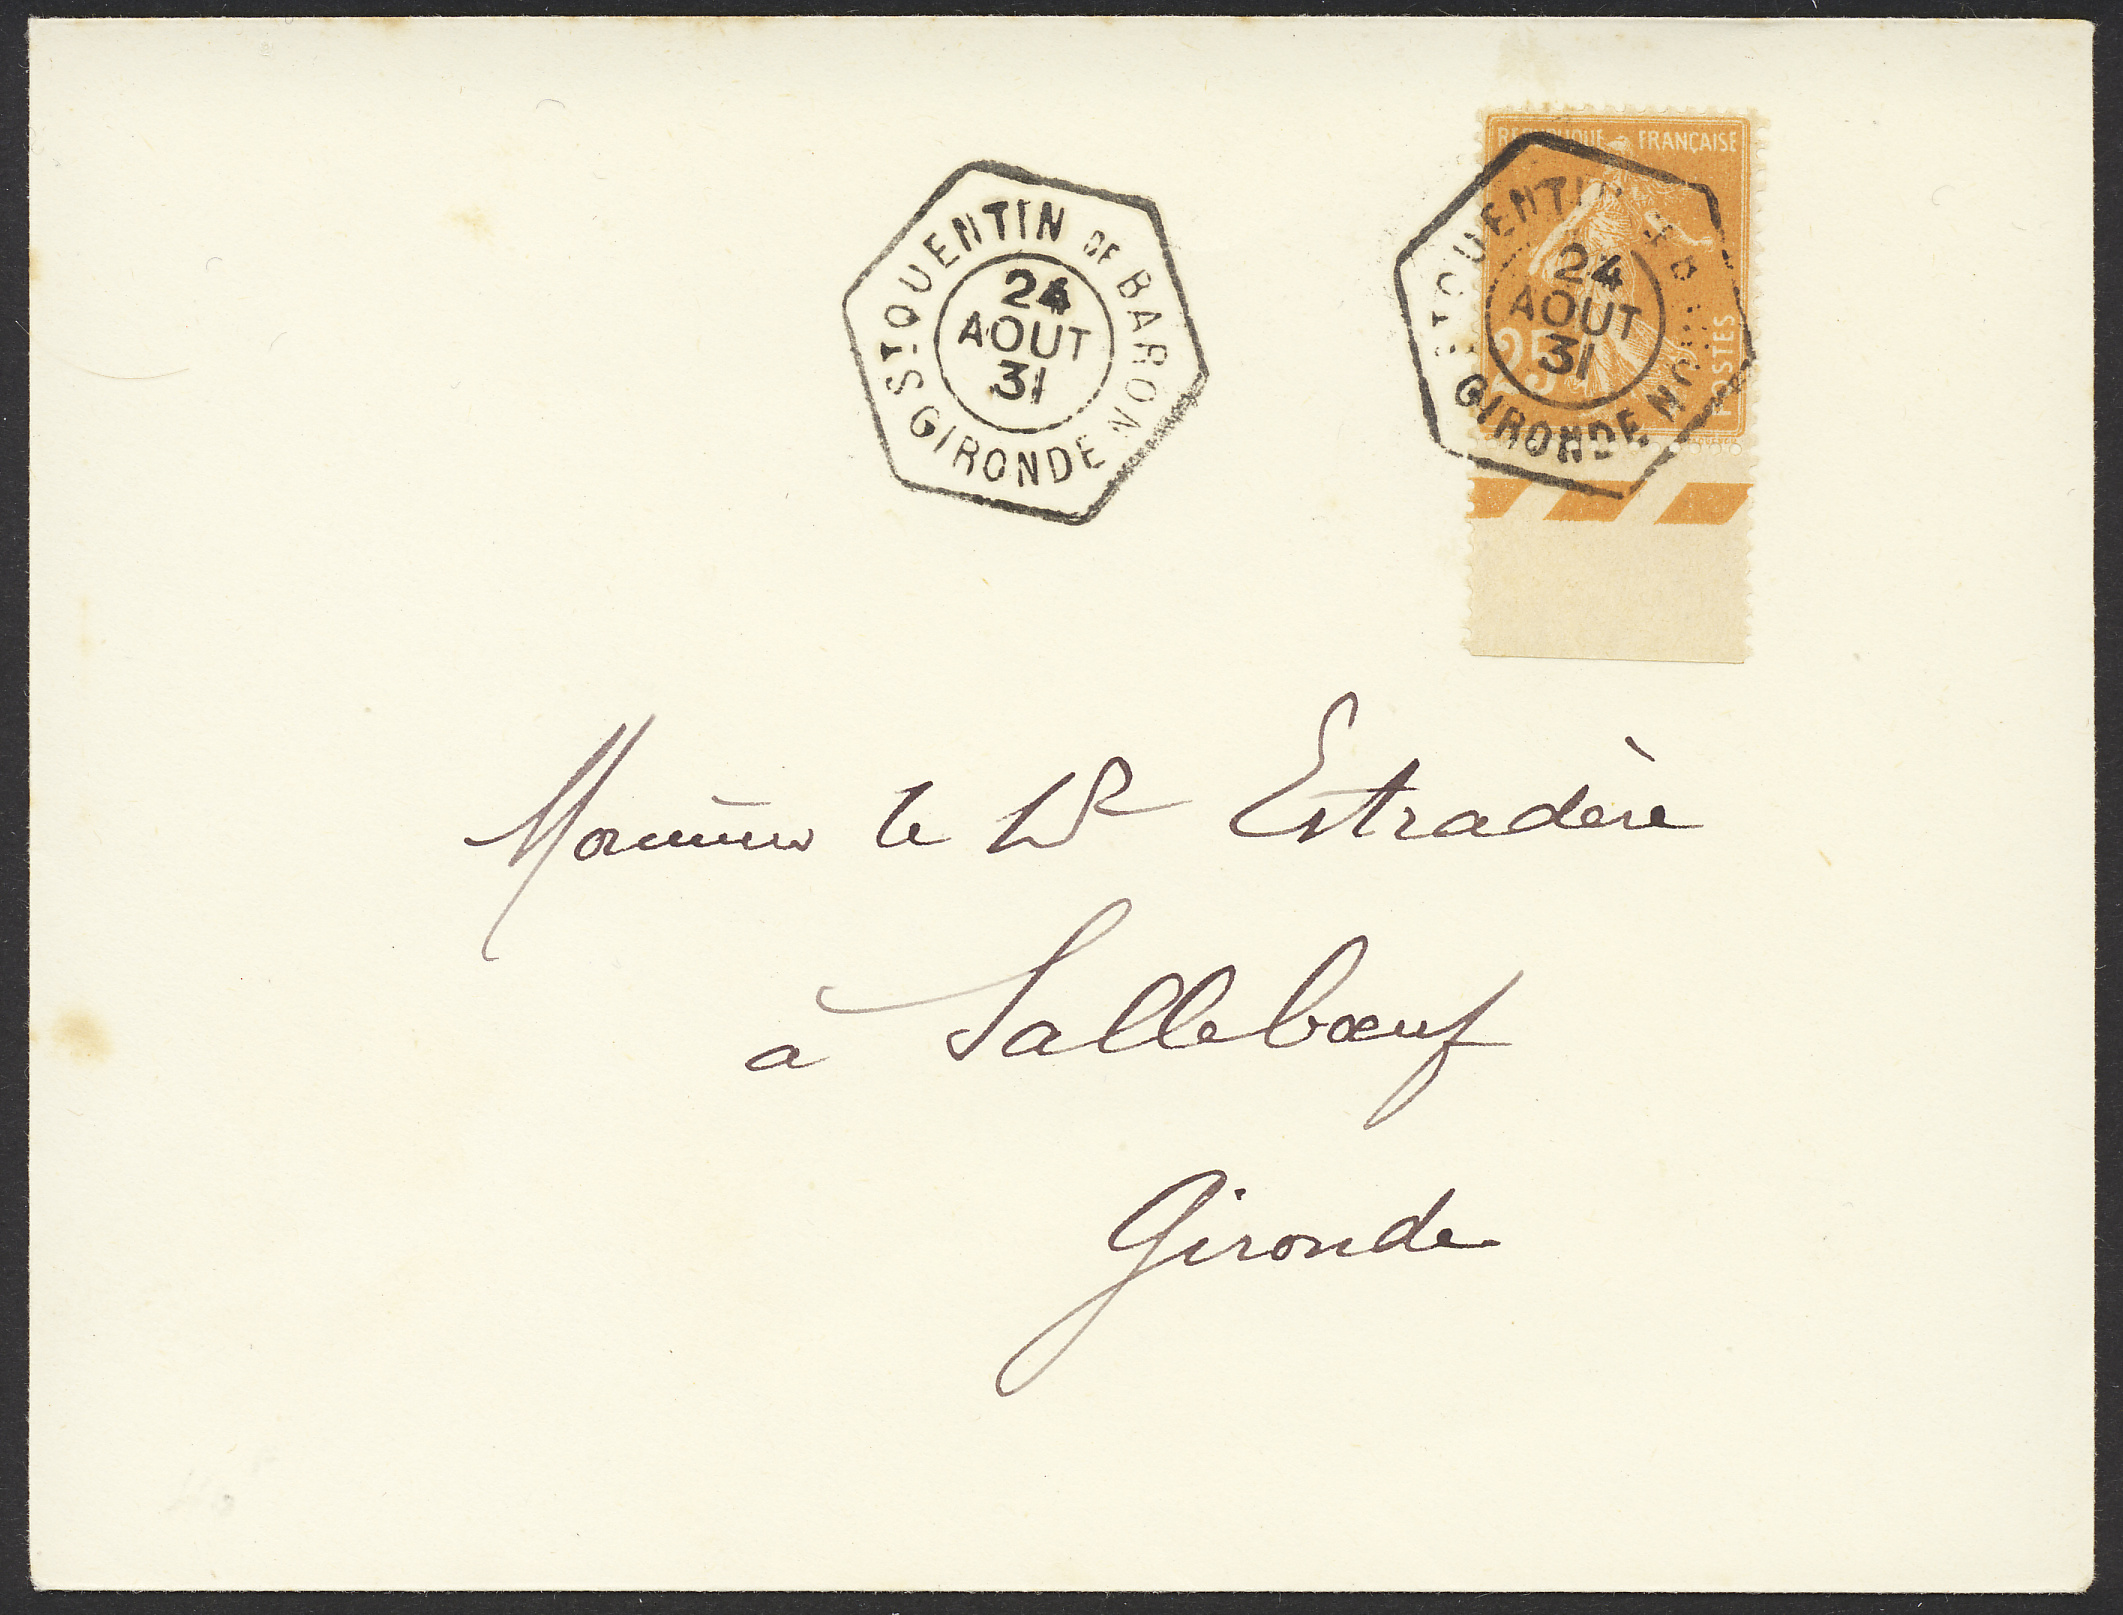 ST QUENTIN DE BARON
24
AOUT
31
GIRONDE
REPUBLIQUE FRANÇAISE
QUENTIN
24
AOUT
31
25
POSTES
GIRONDE
Monsieur le Dr Estradère
à Sallebœuf
Gironde